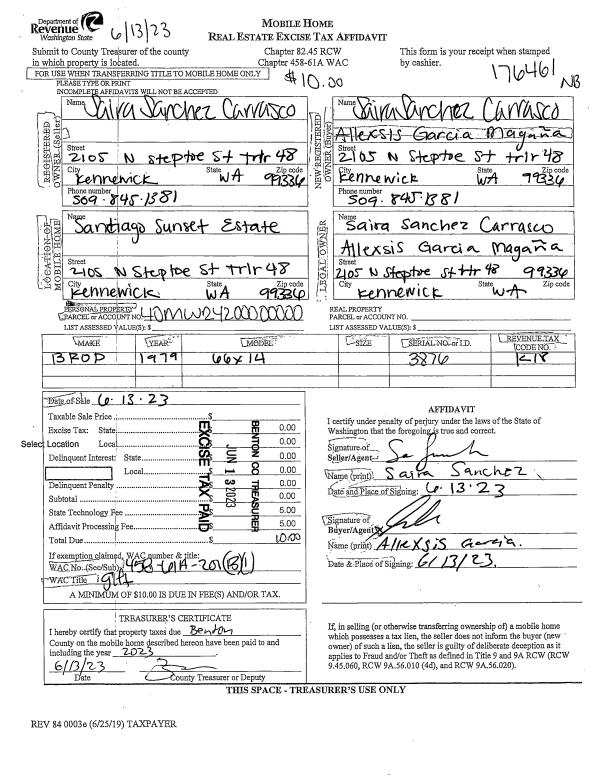 Department of
Revenue
Washington State
6/13/23
MOBILE HOME
REAL ESTATE EXCISE TAX AFFIDAVIT
Submit to County Treasurer of the county
in which property is located.
Chapter 82.45 RCW
Chapter 458-61A WAC
This form is your receipt when stamped
by cashier.
FOR USE WHEN TRANSFERRING TITLE TO MOBILE HOME ONLY
$10.00
176461
NB
PLEASE TYPE OR PRINT
INCOMPLETE AFFIDAVITS WILL NOT BE ACCEPTED
REGISTERED OWNER (Seller)
Name Saira Sanchez Carrasco
Street
2105 N Steptoe St trlr 48
City State Zip code
Kennewick WA 99336
Phone number
509.845.1381
NEW REGISTERED OWNER (Buyer)
Name Saira Sanchez Carrasco
Allexsis Garcia Magaña
Street
2105 N Steptoe St trlr 48
City State Zip code
Kennewick WA 99336
Phone number
509.845.1381
LOCATION OF MOBILE HOME
Name
Santiago Sunset Estate
Street
2105 N Steptoe St trlr 48
City State Zip code
Kennewick WA 99336
LEGAL OWNER
Name
Saira Sanchez Carrasco
Allexsis Garcia Magaña
Street
2105 N Steptoe St trlr 48 99336
City State Zip code
Kennewick WA
PERSONAL PROPERTY
PARCEL or ACCOUNT NO. 40MW24200000000
LIST ASSESSED VALUE(S): $
REAL PROPERTY
PARCEL or ACCOUNT NO.
LIST ASSESSED VALUE(S): $
MAKE YEAR MODEL SIZE SERIAL NO. or I.D. REVENUE TAX CODE NO.
BROD 1979 66x14 3876 K18
Date of Sale 6.13.23
Taxable Sale Price $
Excise Tax: State $ 0.00
Select Location Local $ 0.00
Delinquent Interest: State $ 0.00
Local $ 0.00
Delinquent Penalty $ 0.00
Subtotal $ 0.00
State Technology Fee $ 5.00
Affidavit Processing Fee $ 5.00
Total Due $ 10.00
EXCISE TAX PAID
JUN 13 2023
BENTON CO TREASURER
If exemption claimed, WAC number & title:
WAC No. (Sec/Sub) 458-61A-201(B)1
WAC Title gift
A MINIMUM OF $10.00 IS DUE IN FEE(S) AND/OR TAX.
AFFIDAVIT
I certify under penalty of perjury under the laws of the State of
Washington that the foregoing is true and correct.
Signature of
Seller/Agent
Name (print) Saira Sanchez
Date and Place of Signing: 6.13.23
Signature of
Buyer/Agent
Name (print) Allexsis Garcia.
Date & Place of Signing: 6/13/23
TREASURER'S CERTIFICATE
I hereby certify that property taxes due Benton
County on the mobile home described hereon have been paid to and
including the year 2023
6/13/23
Date County Treasurer or Deputy
If, in selling (or otherwise transferring ownership of) a mobile home
which possesses a tax lien, the seller does not inform the buyer (new
owner) of such a lien, the seller is guilty of deliberate deception as it
applies to Fraud and/or Theft as defined in Title 9 and 9A RCW (RCW
9.45.060, RCW 9A.56.010 (4d), and RCW 9A.56.020).
THIS SPACE - TREASURER'S USE ONLY
REV 84 0003e (6/25/19) TAXPAYER